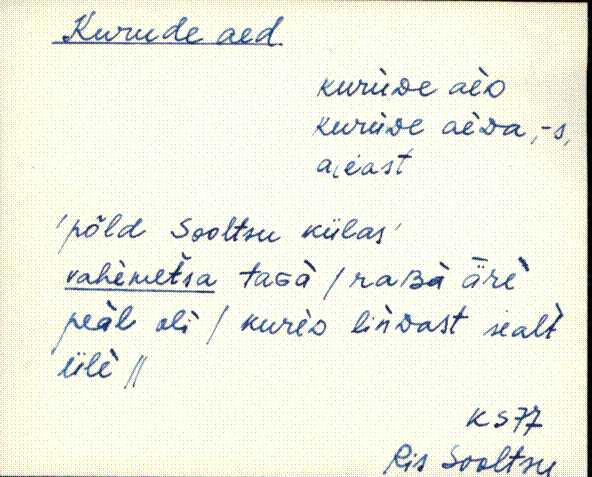 Kurude aed.
kurùᴅe aèᴅ
kurùᴅe aèᴅa, -s,
a͔i̯east
'põld Sooltsu külas'
vahèmetsa taɢà / raʙà ärè
peàl oli / kurèᴅ linᴅast sealt
ülè //
KS77
Ris Sooltsu